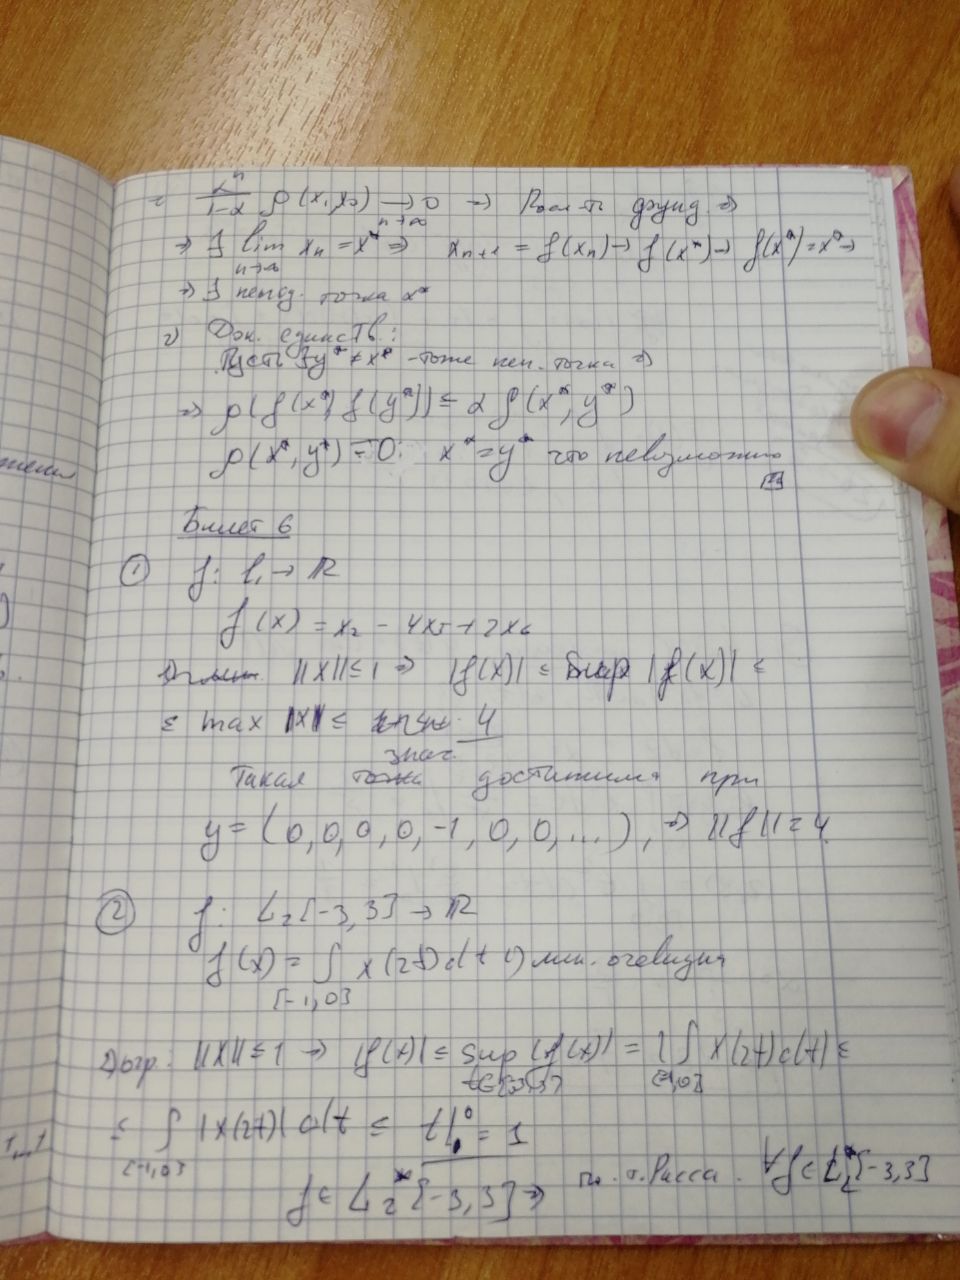 ≤ αⁿ/(1-α) ρ(x₁,x₀) → 0 n→∞ → фунд. ⇒
⇒ ∃ lim xₙ = x* ⇒ xₙ₊₁ = f(xₙ) → f(x*) → f(x*) = x* →
n→∞
⇒ ∃ точка x*
2) Док. единств.:
Пусть ∃y* ≠ x* - тоже неп. точка ⇒
⇒ ρ(f(x*), f(y*)) ≤ α ρ(x*, y*)
ρ(x*, y*) = 0; x* = y* что невозможно
Билет 6
① f: l₁ → ℝ
f(x) = x₂ - 4x₅ + 2x₆
||x|| ≤ 1 ⇒ |f(x)| ≤ |f(x)| ≤
≤ max |x| ≤ 4
знач.
Такая достижима при
y = (0, 0, 0, 0, -1, 0, 0, ...), ⇒ ||f|| = 4.
② f: L₂[-3,3] → ℝ
f(x) = ∫ x(2t)dt 1) лин. очевидна
[-1,0]
Догр: ||x|| ≤ 1 → |f(x)| ≤ sup |f(x)| = |∫ x(2t)dt| ≤
t∈[-3,3] [-1,0]
≤ ∫ |x(2t)| dt ≤ t|⁰₋₁ = 1
[-1,0]
f ∈ L₂*[-3,3] ⇒ по т. Рисса. ∀f ∈ L₂*[-3,3]